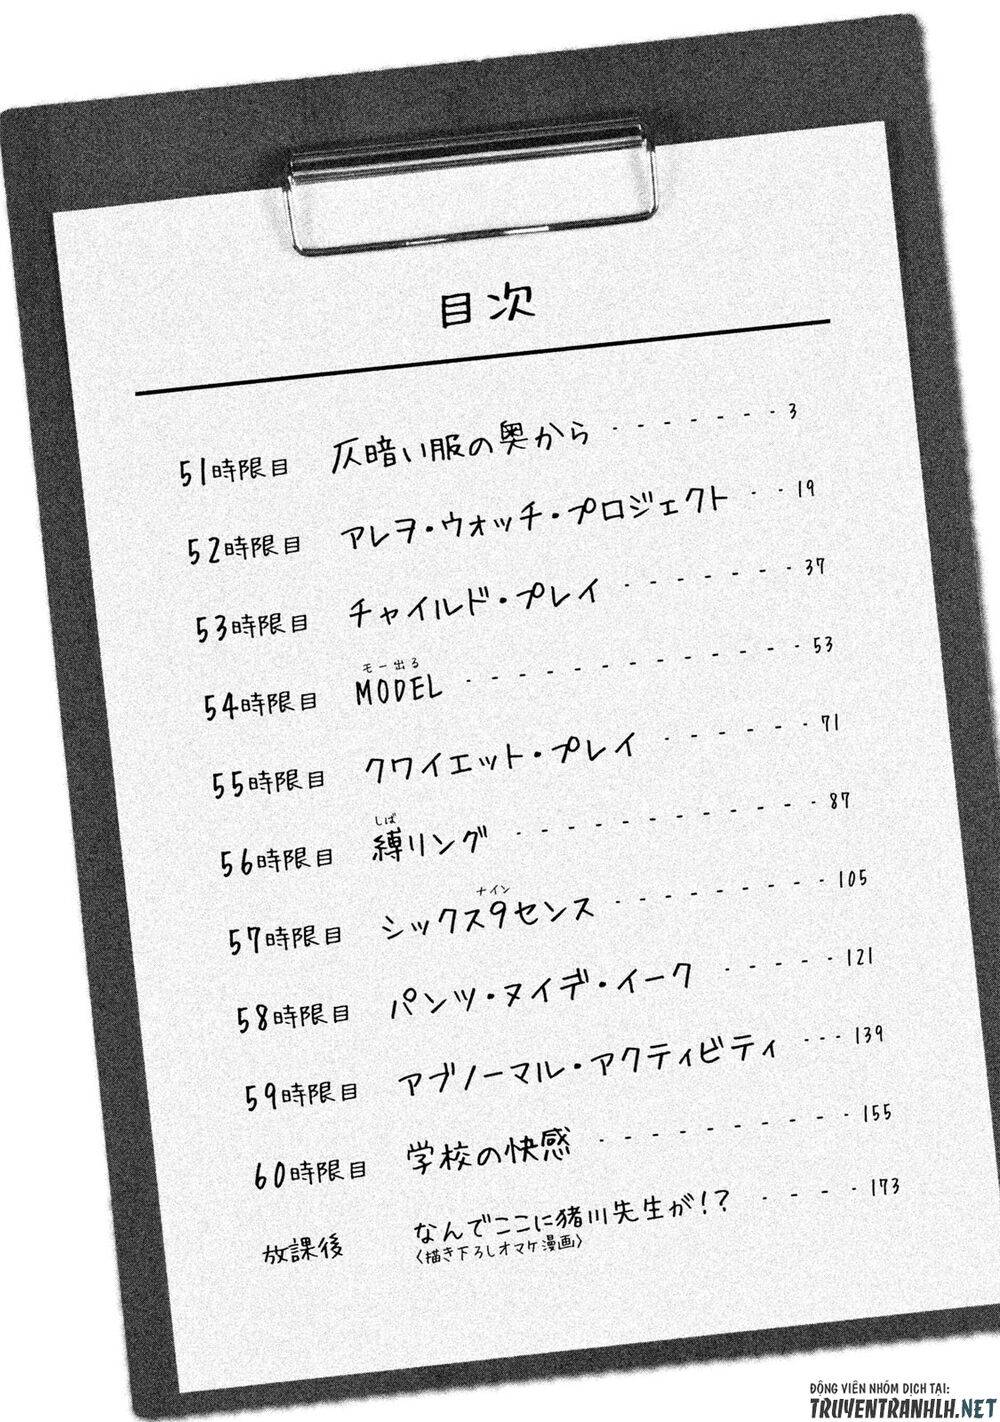 目次
51時限目 仄暗い服の奥から 3
52時限目 アレヲ・ウォッチ・プロジェクト 19
53時限目 チャイルド・プレイ 37
モー出る
54時限目 MODEL 53
55時限目 クワイエット・プレイ 71
しば
56時限目 縛リング 87
ナイン
57時限目 シックス9センス 105
58時限目 パンツ・ヌイデ・イーク 121
59時限目 アブノーマル・アクティビティ 139
60時限目 学校の快感 155
放課後 なんでここに猪川先生が!? 173
〈描き下ろしオマケ漫画〉
ĐỘNG VIÊN NHÓM DỊCH TẠI:
TRUYENTRANHLH.NET